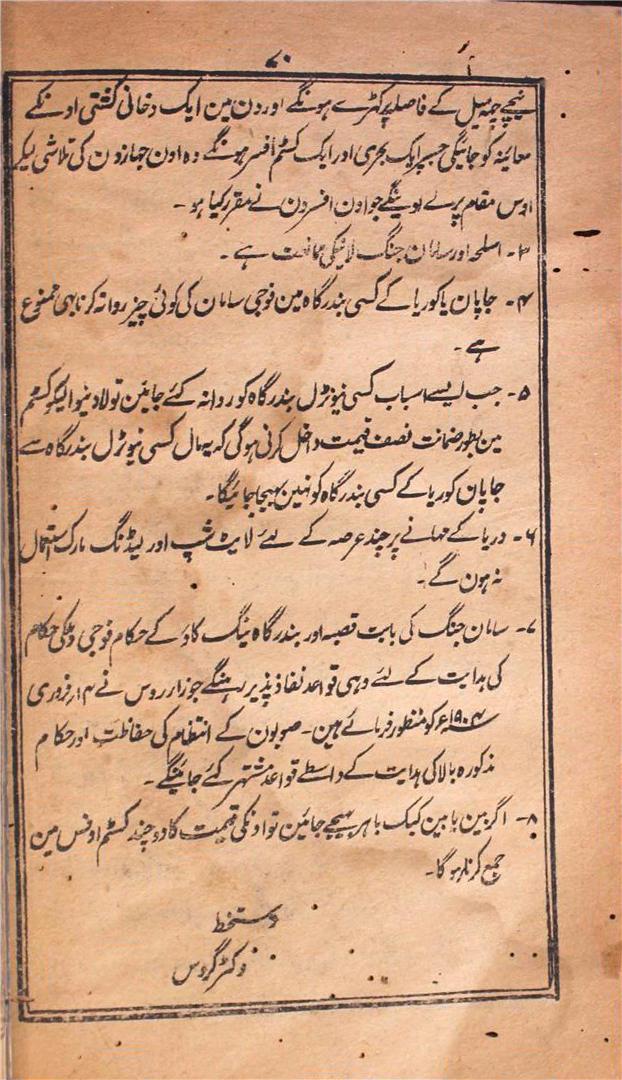 ۷۰
نیچے چھ میل کے فاصلہ پر کھڑے ہونگے اور دن مین ایک دخانی کشتی اونکے
معائینہ کو جائیگی جسپر ایک بحری اور ایک کسٹم افسر ہونگے وہ اون جہازون کی تلاشی لیکر
اوس مقام پر لے لوینگے جو اون افسرون نے مقرر کیا ہو۔
۳۔ اسلحہ اور سامان جنگ لانیکی ممانعت ہے۔
۴۔ جاپان یا کوریا کے کسی بندرگاہ مین فوجی سامان کی کوئی چیز روانہ کرنا بھی ممنوع
ہے۔
۵۔ جب ایسے اسباب کسی نیوٹرل بندرگاہ کو روانہ کئے جائین تو لادنیوالیکو کسٹم
مین بطور ضمانت نصف قیمت داخل کرنی ہوگی کہ یہ مال کسی نیوٹرل بندرگاہ سے
جاپان کوریا کے کسی بندرگاہ کو نہین بھیجا جائیگا۔
۶۔ دریا کے مہانے پر چند عرصہ کے لئے لایٹ شپ اور لیڈنگ مارک استعمال
نہ ہون گے۔
۷۔ سامان جنگ کی بابت قصبہ اور بندرگاہ ینگ کاؤ کے حکام فوجی و ملکی حکام
کی ہدایت کے لئے وہی قواعد نفاذ پذیر رہینگے جو زار روس نے ۱۴؍ فروری
۱۹۰۴ء کو منظور فرمائے ہین۔ صوبون کے انتظام کی حفاظت اور حکام
مذکورہ بالا کی ہدایت کے واسطے قواعد مشتہر کئے جائینگے۔
۸۔ اگر بین یا بین کیک باہر بھیجے جائین تو اونکی قیمت کا دو چند کسٹم اوفس مین
جمع کرنا ہوگا۔
دستخط
وکٹر گروس